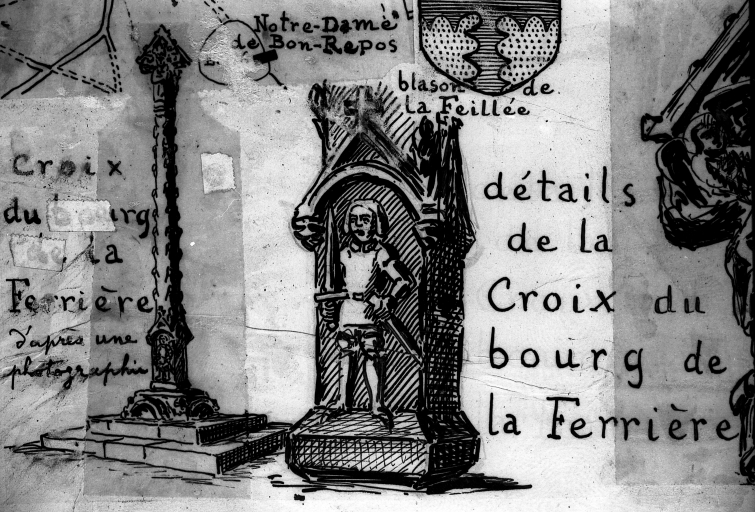 Notre-Dame
de Bon-Repos
blason de
la Feillée
Croix
du bourg
de la
Ferrière
d'après une
photographie
détails
de la
Croix du
bourg de
la Ferrière